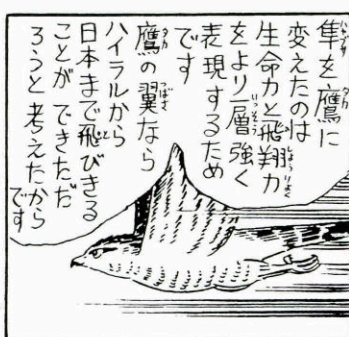 隼を鷹に
変えたのは
生命力と飛翔力
をより一層強く
表現するため
です
鷹の翼なら
ハイラルから
日本まで飛びきる
ことが できただ
ろうと 考えたから
です